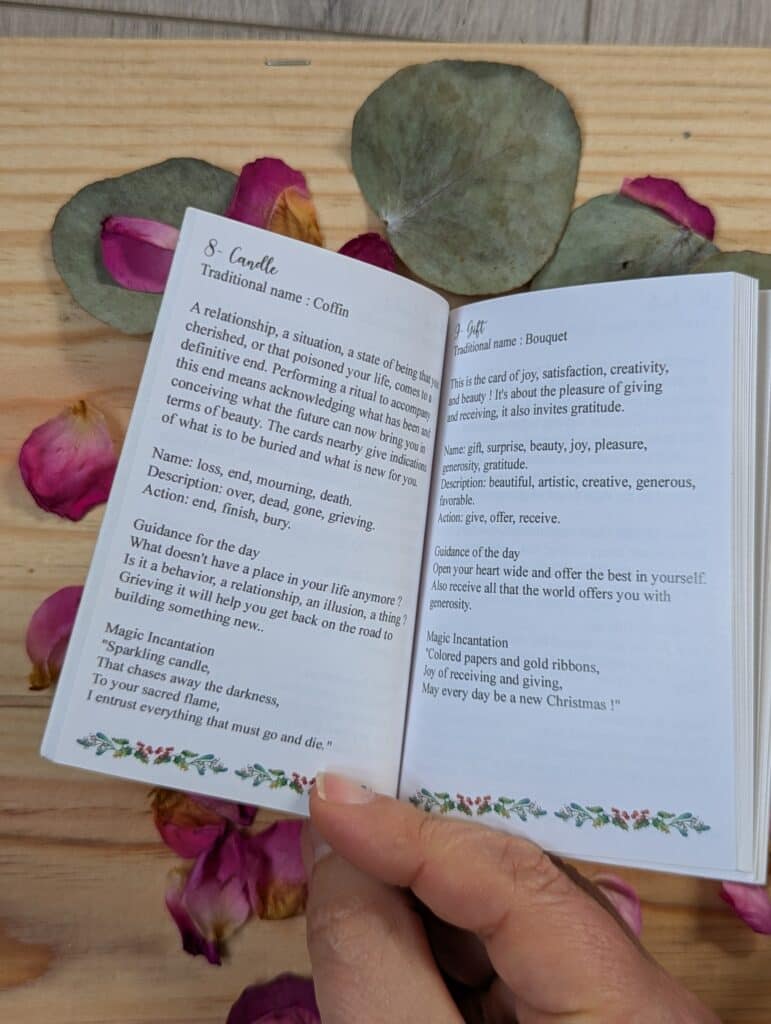 8- Candle
Traditional name : Coffin
A relationship, a situation, a state of being that you
cherished, or that poisoned your life, comes to a
definitive end. Performing a ritual to accompany
this end means acknowledging what has been and
conceiving what the future can now bring you in
terms of beauty. The cards nearby give indications
of what is to be buried and what is new for you.
Name: loss, end, mourning, death.
Description: over, dead, gone, grieving.
Action: end, finish, bury.
Guidance for the day
What doesn't have a place in your life anymore ?
Is it a behavior, a relationship, an illusion, a thing ?
Grieving it will help you get back on the road to
building something new..
Magic Incantation
"Sparkling candle,
That chases away the darkness,
To your sacred flame,
I entrust everything that must go and die."
9- Gift
Traditional name : Bouquet
This is the card of joy, satisfaction, creativity,
and beauty ! It's about the pleasure of giving
and receiving, it also invites gratitude.
Name: gift, surprise, beauty, joy, pleasure,
generosity, gratitude.
Description: beautiful, artistic, creative, generous,
favorable.
Action: give, offer, receive.
Guidance of the day
Open your heart wide and offer the best in yourself.
Also receive all that the world offers you with
generosity.
Magic Incantation
"Colored papers and gold ribbons,
Joy of receiving and giving,
May every day be a new Christmas !"